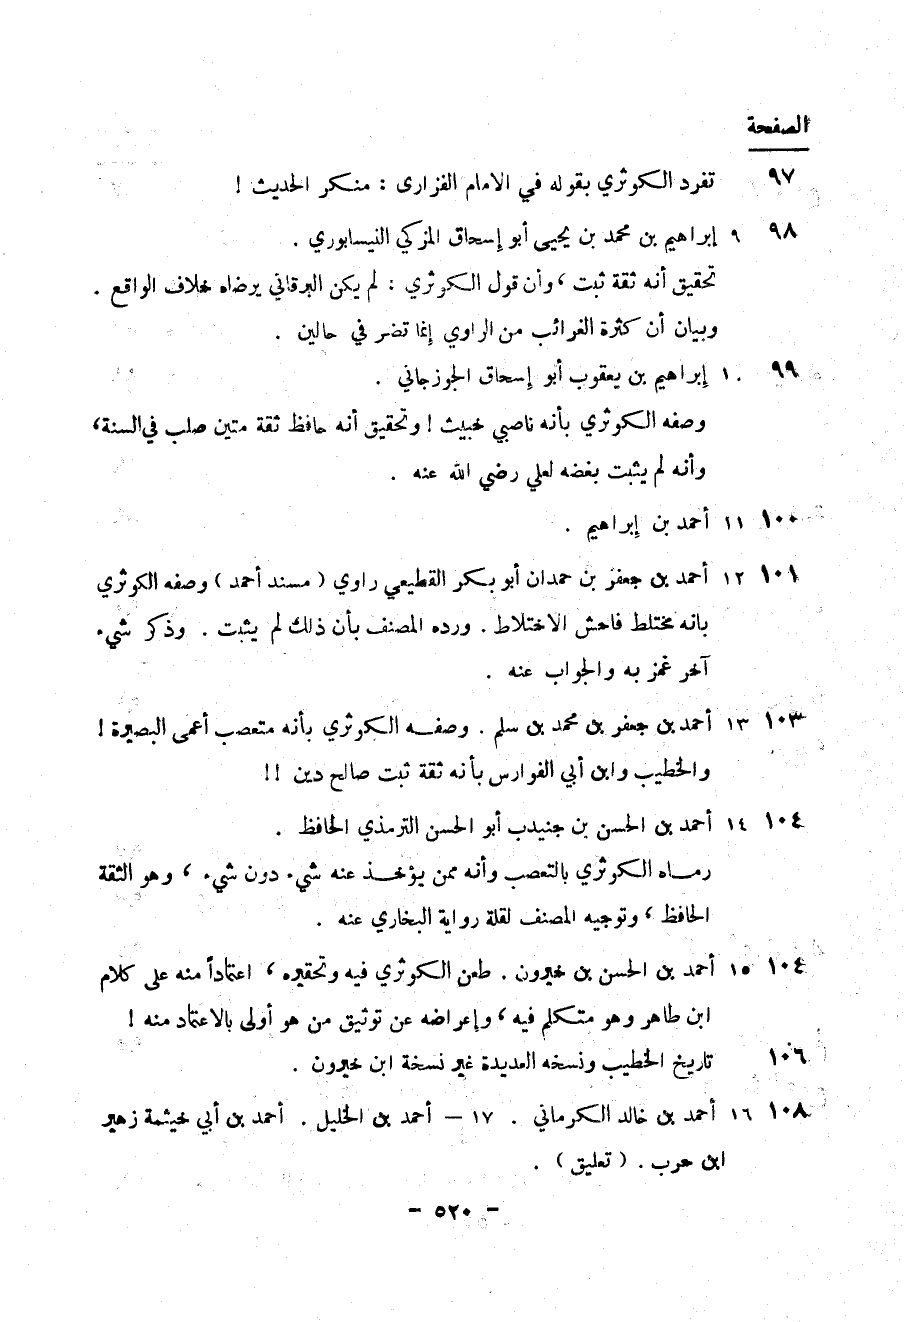 الصفحة
٩٧ تفرد الكوثري بقوله في الامام الفزارى : منكر الحديث !
٩٨ ٩ إبراهيم بن محمد بن يحيى أبو إسحاق المزكي النيسابوري .
تحقيق أنه ثقة ثبت ، وأن قول الكوثري : لم يكن البرقاني يرضاه خلاف الواقع .
وبيان أن كثرة الغرائب من الراوي إنما تضر في حالين .
٩٩ ١٠ إبراهيم بن يعقوب أبو إسحاق الجوزجاني .
وصفه الكوثري بأنه ناصبي خبيث ! وتحقيق أنه حافظ ثقة متين صلب في السنة،
وأنه لم يثبت بغضه لعلي رضي الله عنه .
١٠٠ ١١ أحمد بن إبراهيم .
١٠١ ١٢ أحمد بن جعفر بن حمدان أبو بكر القطيعي راوي ( مسند أحمد ) وصفه الكوثري
بانه مختلط فاحش الاختلاط . ورده المصنف بأن ذلك لم يثبت . وذكر شيء
آخر غمز به والجواب عنه .
١٠٣ ١٣ أحمد بن جعفر بن محمد بن سلم . وصفه الكوثري بأنه متعصب أعمى البصيرة !
والخطيب وابن أبي الفوارس بأنه ثقة ثبت صالح دين !!
١٠٤ ١٤ أحمد بن الحسن بن جنيدب أبو الحسن الترمذي الحافظ .
رماه الكوثري بالتعصب وأنه ممن يؤخذ عنه شيء دون شيء ، وهو الثقة
الحافظ ، وتوجيه المصنف لقلة رواية البخاري عنه .
١٠٤ ١٥ أحمد بن الحسن بن خيرون . طعن الكوثري فيه وتحقيره ، اعتماداً منه على كلام
ابن طاهر وهو متكلم فيه ، وإعراضه عن توثيق من هو أولى بالاعتماد منه !
١٠٦ تاريخ الخطيب ونسخه العديدة غير نسخة ابن خيرون .
١٠٨ ١٦ أحمد بن خالد الكرماني . ١٧ — أحمد بن الخليل . أحمد بن أبي خيثمة زهير
ابن حرب . ( تعليق ) .
- ٥٢٠ -